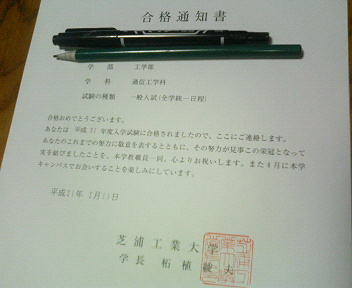 合格通知書
学 部 工学部
学 科 通信工学科
試験の種類 一般入試(全学統一日程)
合格おめでとうございます。
あなたは 平成 21 年度入学試験に合格されましたので、ここにご連絡します。
あなたのこれまでの努力に敬意を表するとともに、その努力が見事この栄冠となって
実を結びましたことを、本学教職員一同、心よりお祝いします。また4月に本学
キャンパスでお会いすることを楽しみにしています。
平成21年 2月11日
芝浦工業大学
学長 柘植綾夫